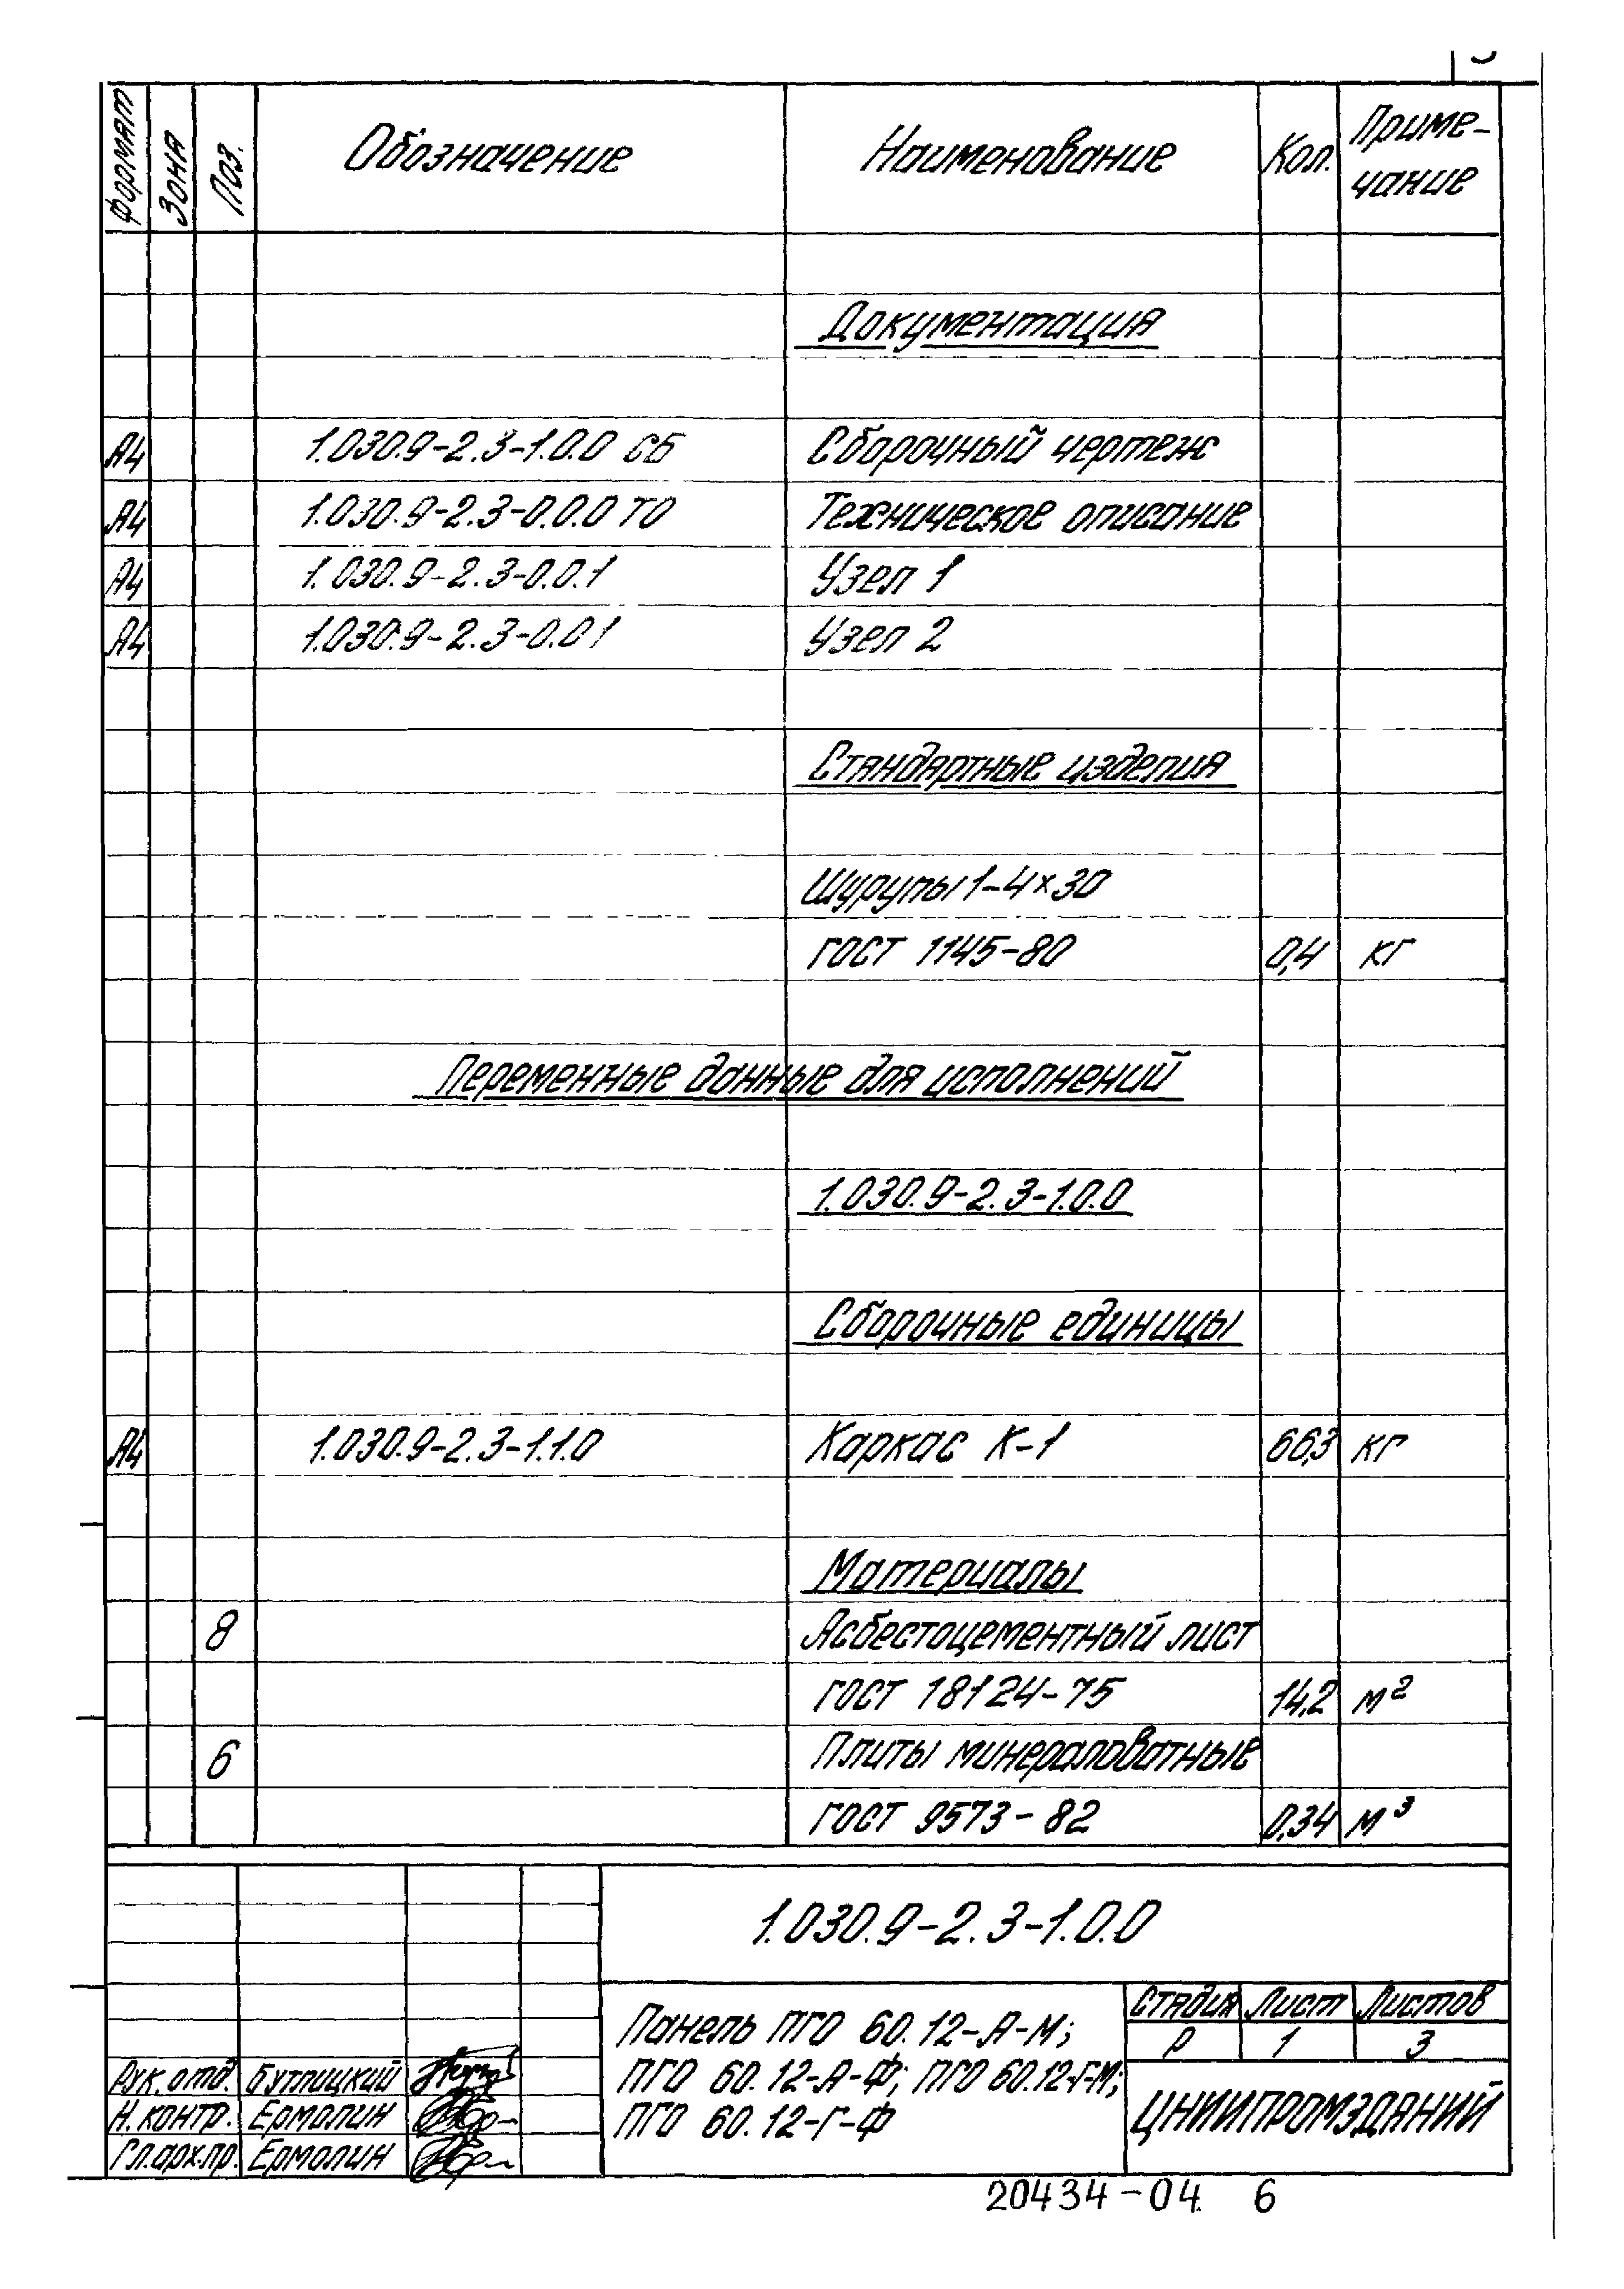 Формат Зона Поз. Обозначение Наименование Кол. Приме-
чание
Документация
А4 1.030.9-2.3-1.0.0 СБ Сборочный чертеж
А4 1.030.9-2.3-0.0.0 ТО Техническое описание
А4 1.030.9-2.3-0.0.1 Узел 1
А4 1.030.9-2.3-0.0 1 Узел 2
Стандартные изделия
Шурупы 1-4×30
ГОСТ 1145-80 0,4 кг
Переменные данные для исполнений
1.030.9-2.3-1.0.0
Сборочные единицы
А4 1.030.9-2.3-1.1.0 Каркас К-1 66,3 кг
Материалы
8 Асбестоцементный лист
ГОСТ 18124-75 14,2 м²
6 Плиты минераловатные
ГОСТ 9573-82 0,34 м³
1.030.9-2.3-1.0.0
Панель ПГО 60.12-А-М;
ПГО 60.12-А-Ф; ПГО 60.12-Г-М;
ПГО 60.12-Г-Ф
Стадия Лист Листов
Р 1 3
ЦНИИПРОМЗДАНИЙ
Рук. отд. Бутлицкий
Н. контр. Ермолин
Гл.арх.пр. Ермолин
20434-04 6